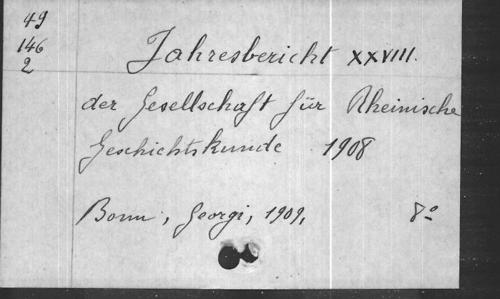 49
146
2
Jahresbericht XXVIII.
der Gesellschaft für Rheinische
Geschichtskunde 1908
Bonn, Georgi, 1909, 8°